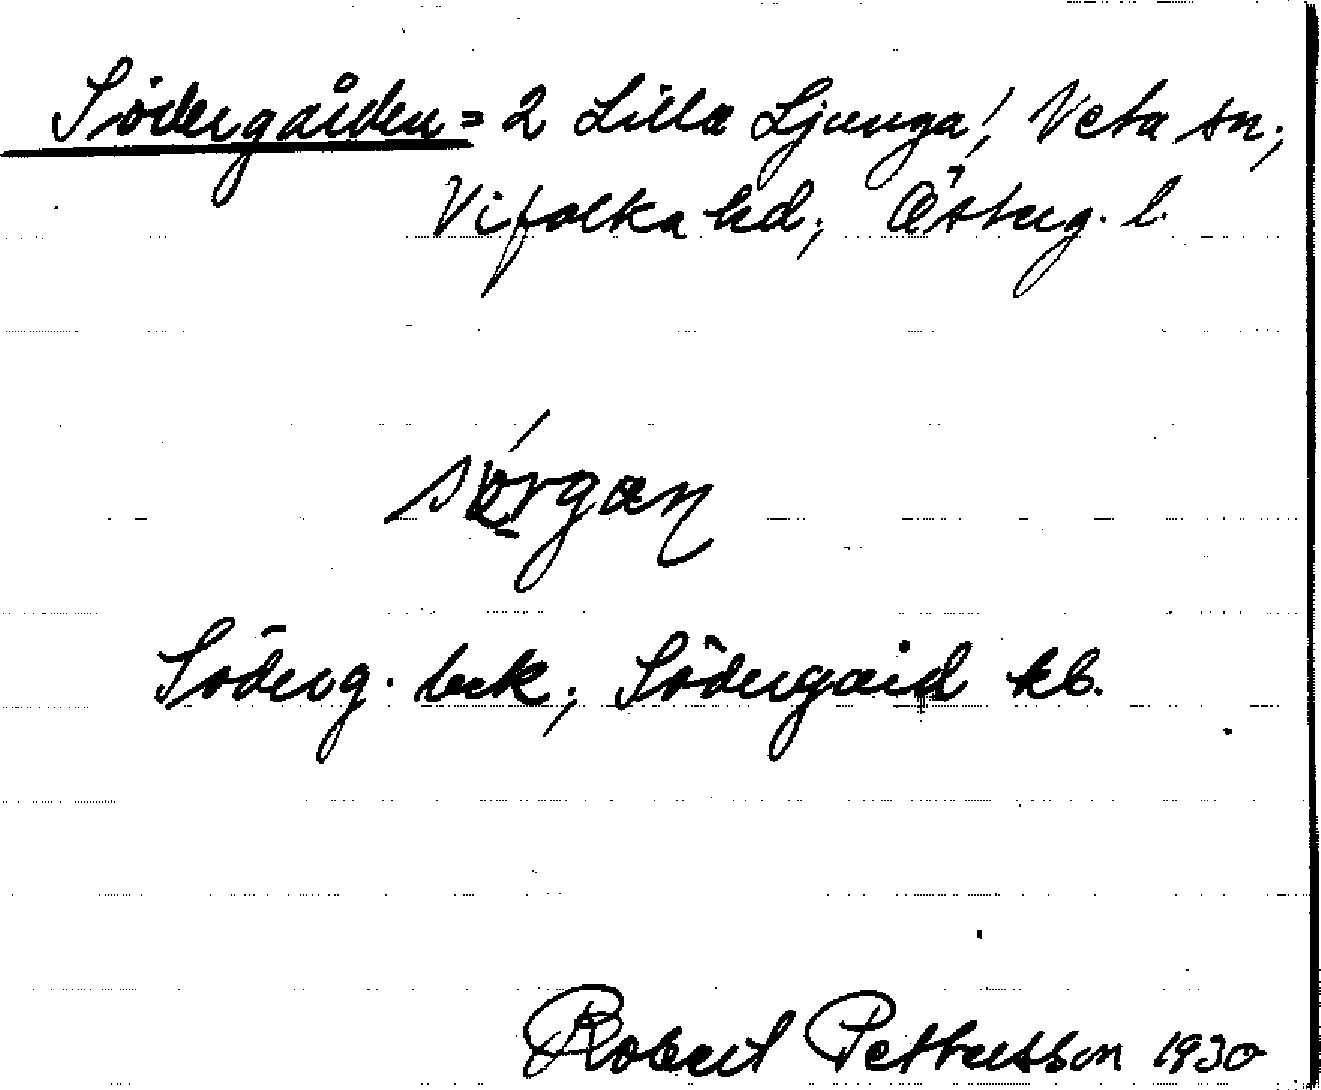 Södergården = 2 Lilla Ljunga, Veta sn;
Vifolka hd; Österg. l.
sörgan
Söderg. beck; Södergård kb.
Robert Pettersson 1930